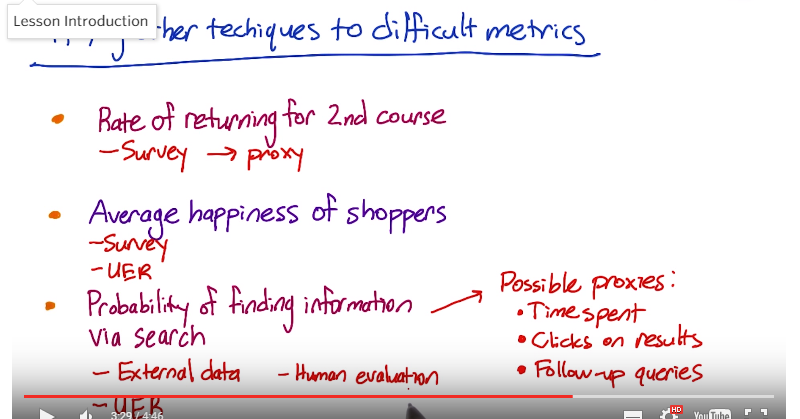 Lesson Introduction
other techiques to difficult metrics
• Rate of returning for 2nd course
- Survey → proxy
• Average happiness of shoppers
- Survey
- UER
• Probability of finding information
via search
- External data - Human evaluation
- UER
Possible proxies:
• Time spent
• Clicks on results
• Follow-up queries
3:29 / 4:46
HD
YouTube